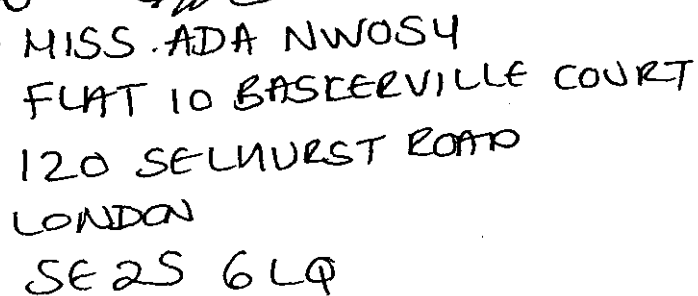 MISS. ADA NWOSU
FLAT 10 BASKERVILLE COURT
120 SELHURST ROAD
LONDON
SE25 6LQ